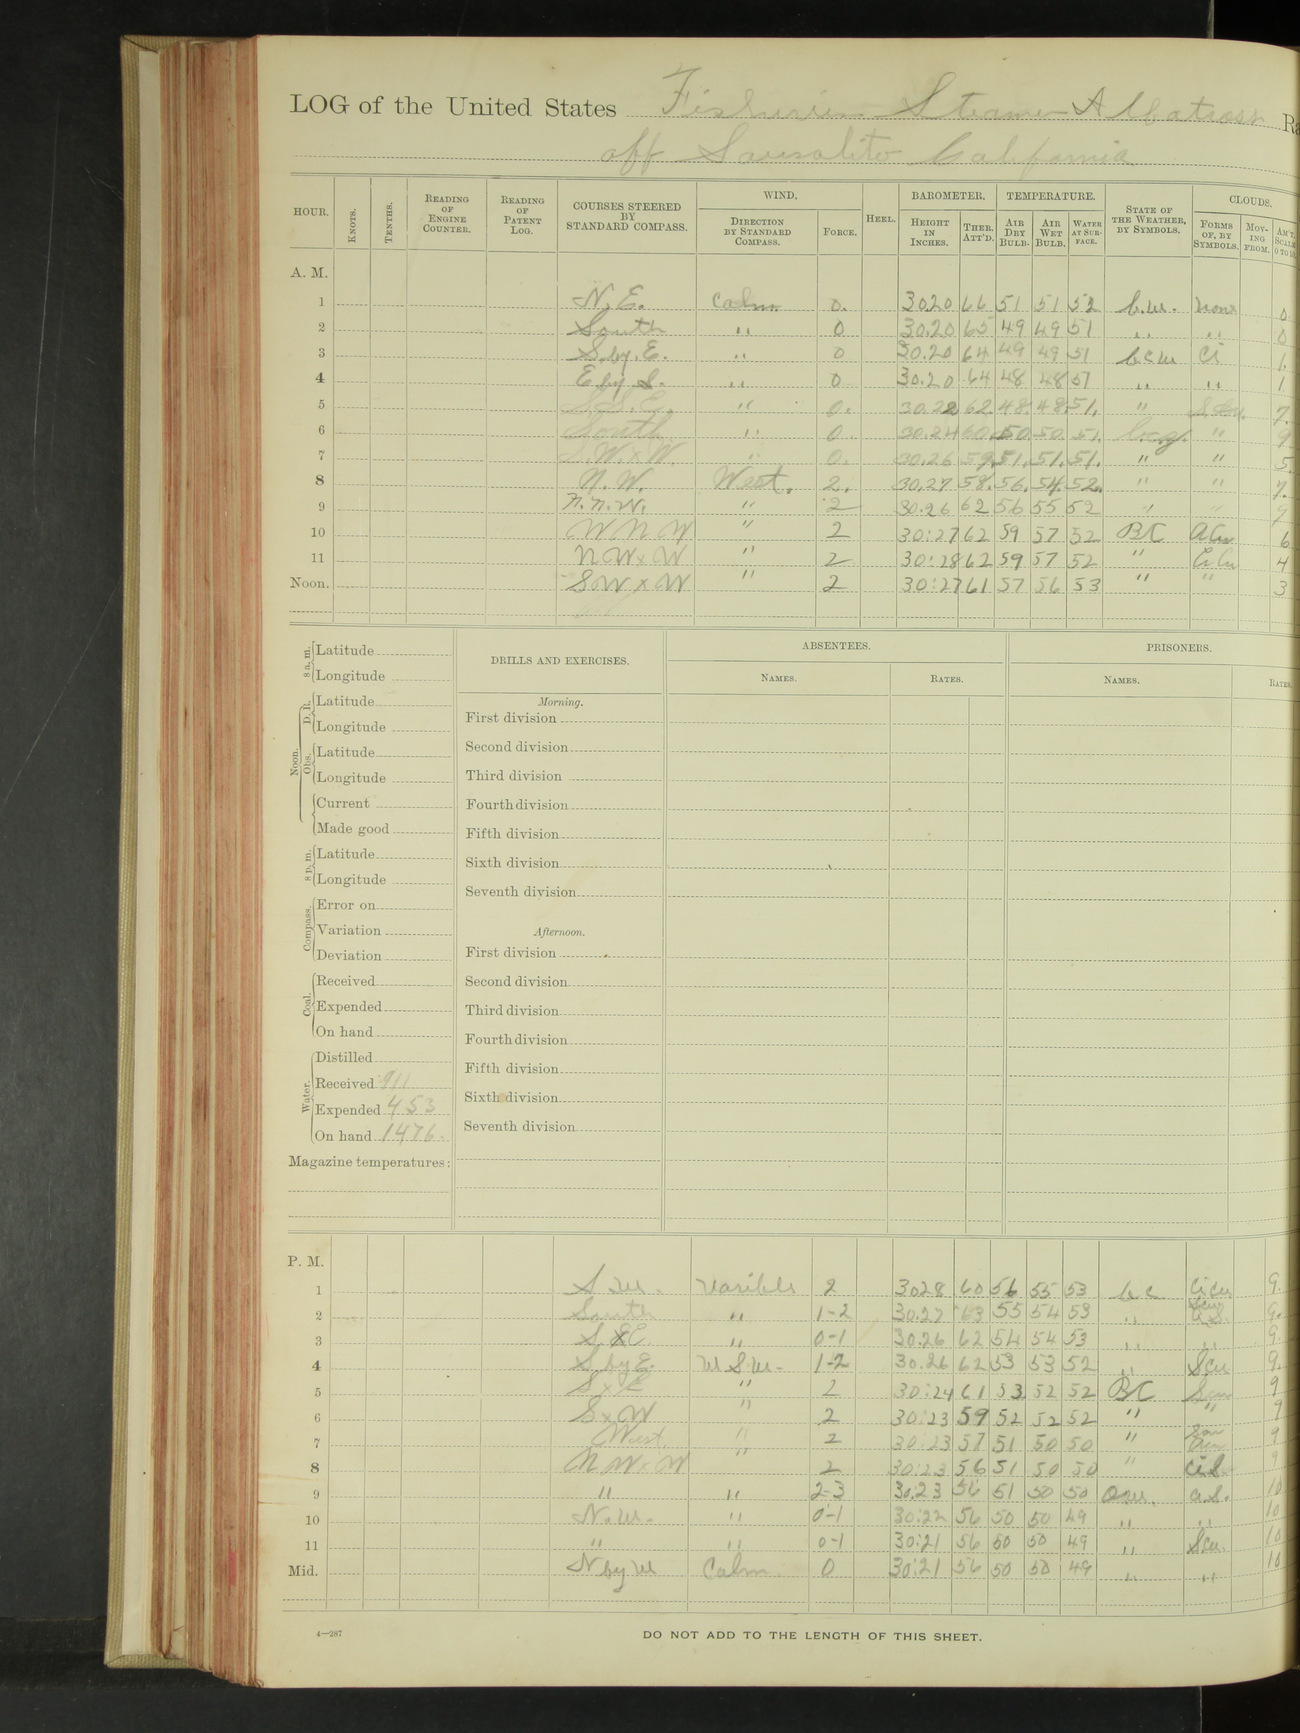 LOG of the United States Fisheries Steamer Albatross Ra
off Sausalito California
HOUR. KNOTS. TENTHS. READING OF ENGINE COUNTER. READING OF PATENT LOG. COURSES STEERED BY STANDARD COMPASS. WIND. DIRECTION BY STANDARD COMPASS. FORCE. HEEL. BAROMETER. HEIGHT IN INCHES. THER. ATT'D. TEMPERATURE. AIR DRY BULB. AIR WET BULB. WATER AT SURFACE. STATE OF THE WEATHER, BY SYMBOLS. CLOUDS. FORMS OF, BY SYMBOLS. MOVING FROM. AM'T, SCALE 0 TO 10.
A. M.
1 N.E. Calm 0. 30.20 66 51 51 52 b.m. none 0
2 South " 0 30.20 65 49 49 51 " " 0
3 S. by. E. " 0 30.20 64 49 49 51 b c m Ci 1
4 E by S. " 0 30.20 64 48 48 51 " " 1
5 S.S.E. " 0. 30.22 62 48 48 51. " 7.
6 South " 0. 30.24 60 50 50 51. " 9
7 S.W.xW. " 0. 30.26 59 51. 51. 51. " " 5.
8 N.W. West. 2. 30.27 58. 56. 54. 52. " " 7.
9 N.N.W. " 2 30.26 62 56 55 52 " "
10 WNW " 2 30:27 62 59 57 52 BC A Cu 6
11 NWxW " 2 30:28 62 59 57 52 " Ci Cu 4
Noon. SWxW " 2 30:27 61 57 56 53 " " 3
8 a. m. Latitude
Longitude
Noon. D. R. Latitude
Longitude
Obs. Latitude
Longitude
Current
Made good
8 p. m. Latitude
Longitude
Compass. Error on
Variation
Deviation
Coal. Received
Expended
On hand
Water. Distilled
Received 911
Expended 453
On hand 1476.
Magazine temperatures:
DRILLS AND EXERCISES.
Morning.
First division
Second division
Third division
Fourth division
Fifth division
Sixth division
Seventh division
Afternoon.
First division
Second division
Third division
Fourth division
Fifth division
Sixth division
Seventh division
ABSENTEES.
NAMES. RATES.
PRISONERS.
NAMES. RATES.
P. M.
1 S W. Varible 2 30.28 60 56 55 53 b c Ci Cu 9.
2 South " 1-2 30.27 63 55 54 53 " 9.
3 " 0-1 30.26 62 54 54 53 " " 9.
4 S. by E. W S W. 1-2 30.26 62 53 53 52 " S cu 9.
5 S x E " 2 30:24 61 53 52 52 BC 9
6 S x W " 2 30:23 59 52 52 52 " " 9
7 West " 2 30:23 57 51 50 50 " 9
8 NWxW " 2 30:23 56 51 50 50 " 9
9 " " 2-3 30:23 56 51 50 50 o m. 10
10 N. W. " 0-1 30:22 56 50 50 49 " " 10
11 " " 0-1 30:21 56 50 50 49 " S cu. 10
Mid. N by W Calm 0 30:21 56 50 50 49 " " 10
4—287 DO NOT ADD TO THE LENGTH OF THIS SHEET.